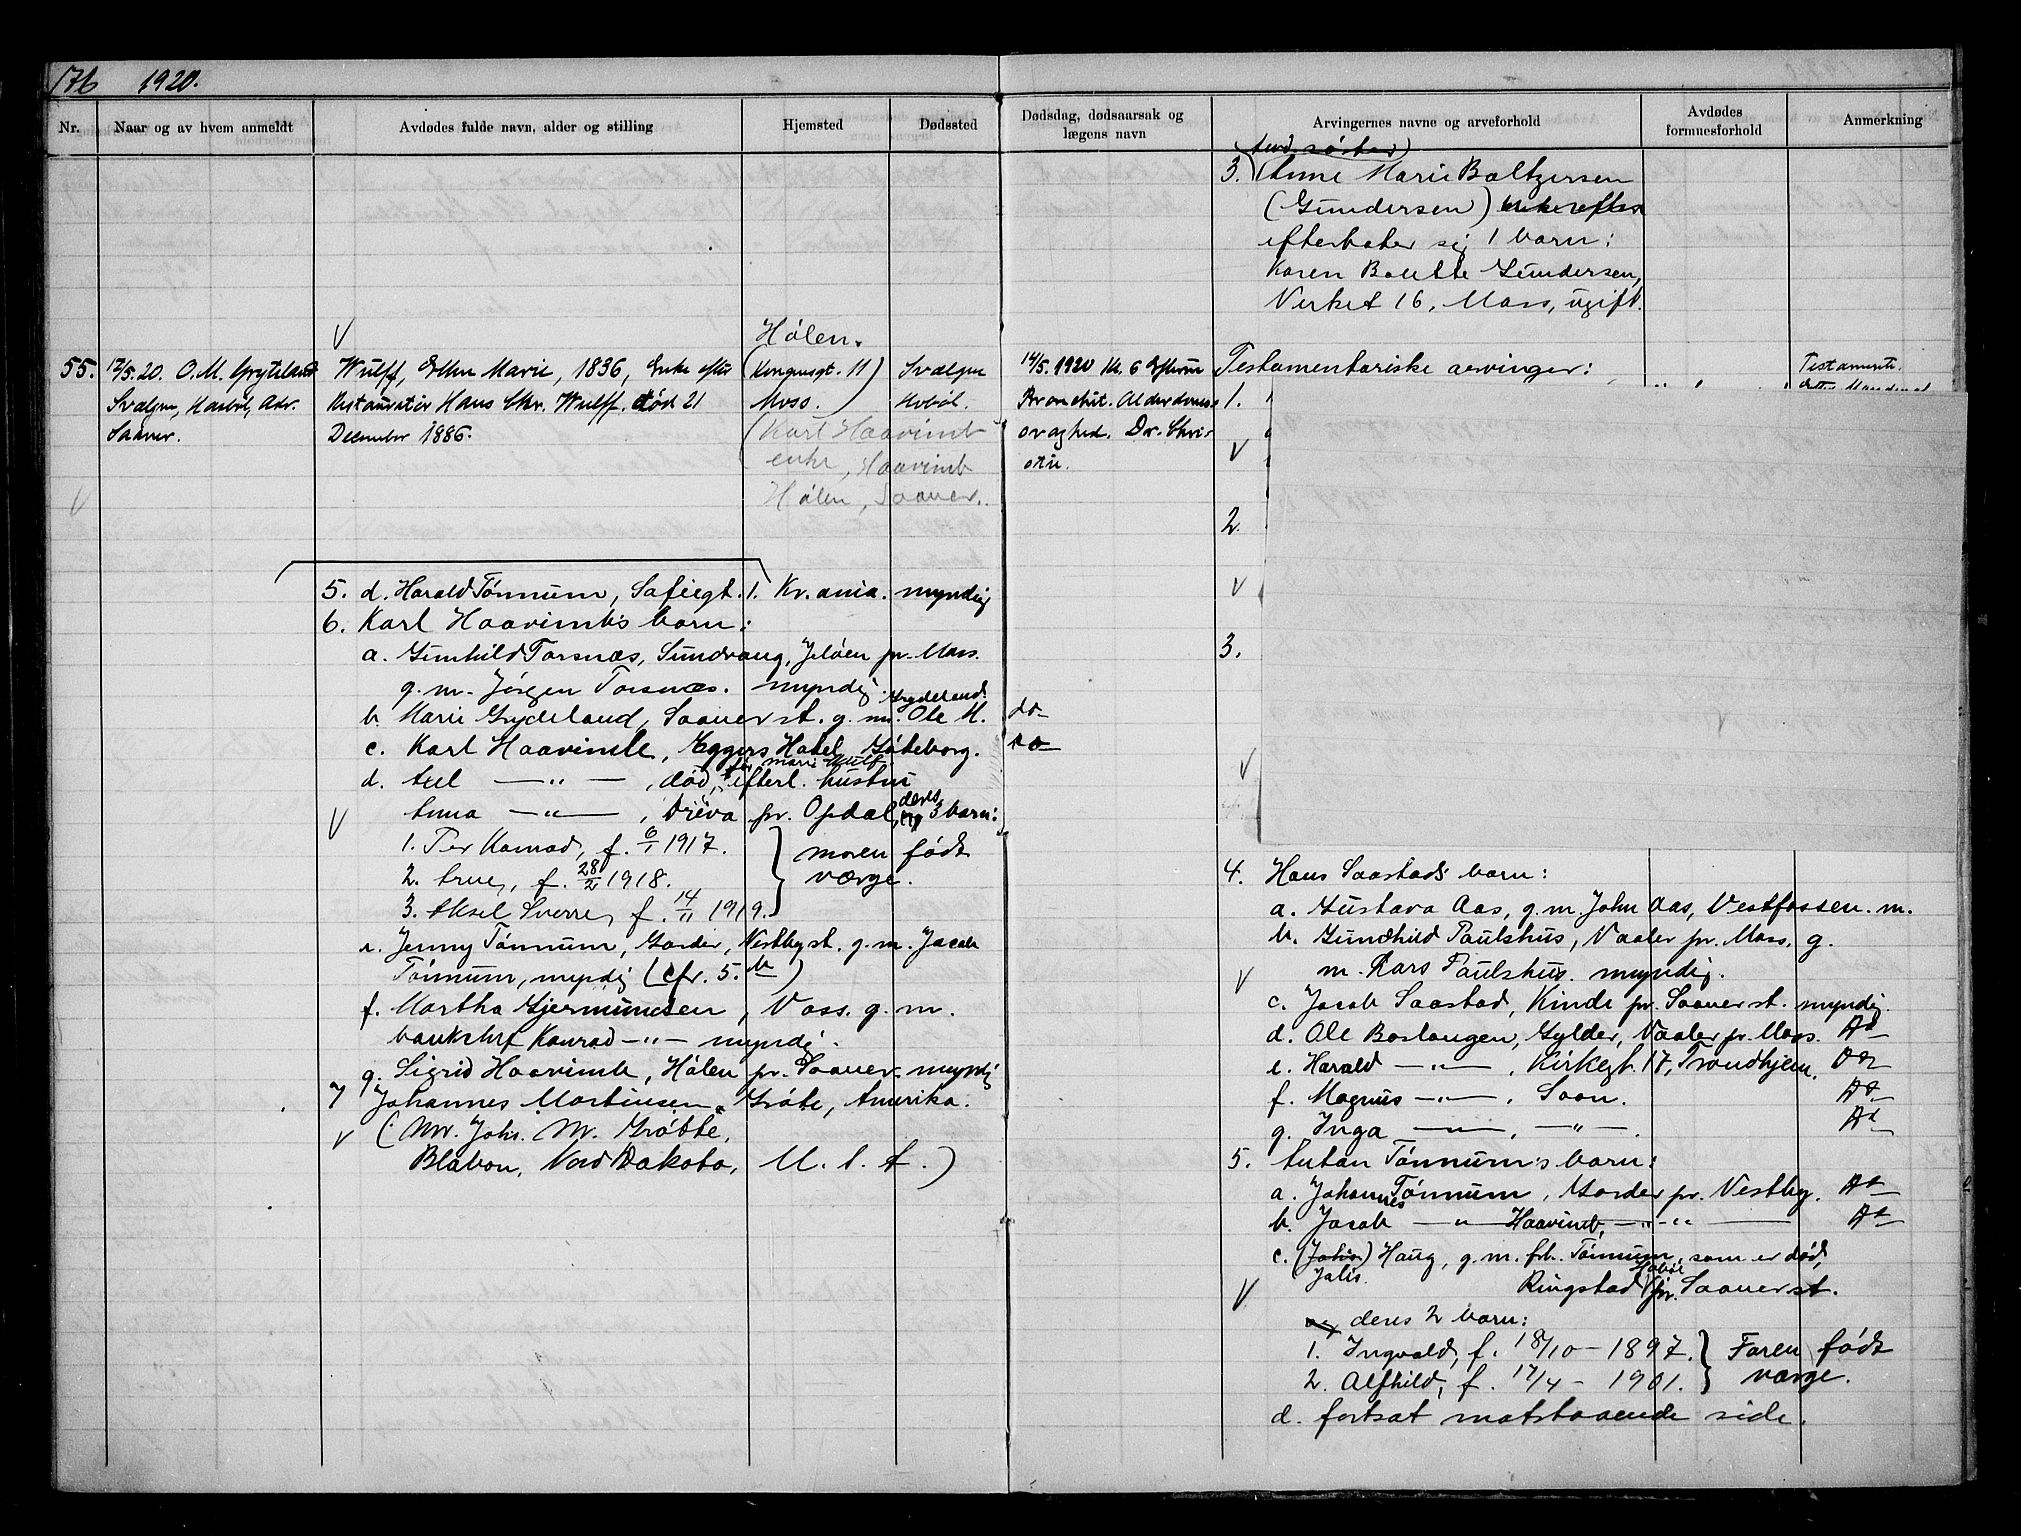 176 1920.
Nr. Naar og av hvem anmeldt Avdødes fulde navn, alder og stilling Hjemsted Dødssted
55. 17/5.20. O. M. Gryteland
Svælgen, Hobøl, Adr.
Saaner.
Wulff, Ellen Marie, 1836, Enke efter
Restauratør Hans Chr. Wulff. død 21
December 1886.
Hølen.
(Kongensgt. 11)
Moss.
(Karl Haavimb
enke, Haavimb
Hølen, Saaner.
Svælgen
Hobøl.
5. d. Harald Tønnum, Sofiegt. 1. Kr.ania. myndig
6. Karl Haavimb's barn:
a. Gunhild Torsnæs, Sundvang, Jeløen pr. Moss.
g. m. Jørgen Torsnæs. myndig.
b. Marie Grydeland, Saaner st. g. m. Ole M. Grydeland. do
c. Karl Haavimb, Eggers Hotel, Gøteborg. do
d. Axel —"—, død, før Marie Wulf. efterl. hustru
Anna —"—, Driva pr. Opdal, deres 3 barn:
1. Per Konrad, f. 6/1 1917.
2. Arne, f. 28/2 1918.
3. Aksel Sverre, f. 14/11 1919.
moren født
værge.
e. Jenny Tønnum, Garder, Vestby st. g. m. Jacob
Tønnum, myndig (cfr. 5. b)
f. Martha Gjermundsen, Voss. g. m.
banksjef Konrad —"— myndig.
g. Sigrid Haavimb, Hølen pr. Saaner. myndig
7 Johannes Martinsen Grøte, Amerika.
(Mr. Johs. M. Grøtte,
Blabon, Nord Dakota, U. S. A.)
Dødsdag, dødsaarsak og lægens navn Arvingernes navne og arveforhold Avdødes formuesforhold Anmerkning
(Avd. søster)
3. Anne Marie Baltzersen
(Gundersen)
efterlater sig 1 barn:
Karen Bolette Gundersen,
Verket 16, Moss, ugift.
14/5. 1920 Kl. 6 Efterm
Bronchit. Alderdoms-
svaghed. Dr. Chri-
stie.
Testamentariske arvinger:
Testamente
1.
2.
3.
4. Hans Saastad's barn:
a. Gustava Aas, g. m. John Aas, Vestfossen. m.
b. Gundhild Paulshus, Vaaler pr. Moss. g.
m. Lars Paulshus. myndig.
c. Jacob Saastad, Kinde pr. Saaner st. myndig.
d. Ole Boslangen, Gylder, Vaaler pr. Moss. do
e. Harald —"—, Kirkegt. 17, Trondhjem. do
f. Magnus —"—, Soon. do
g. Inga —"—, —"—. do
5. Antan Tønnum's barn:
a. Johannes Tønnum, Garder pr. Vestby. do
b. Jacob —"— Haavimb, —"— do
c. (Johs.) Haug, g. m. frk. Tønnum, som er død,
Johs. Ringstad Hobøl pr. Saaner st.
og deres 2 barn:
1. Ingvald, f. 18/10 - 1897.
2. Alfhild, f. 17/4 - 1901.
Faren født
værge.
d. fortsat motstaaende side.